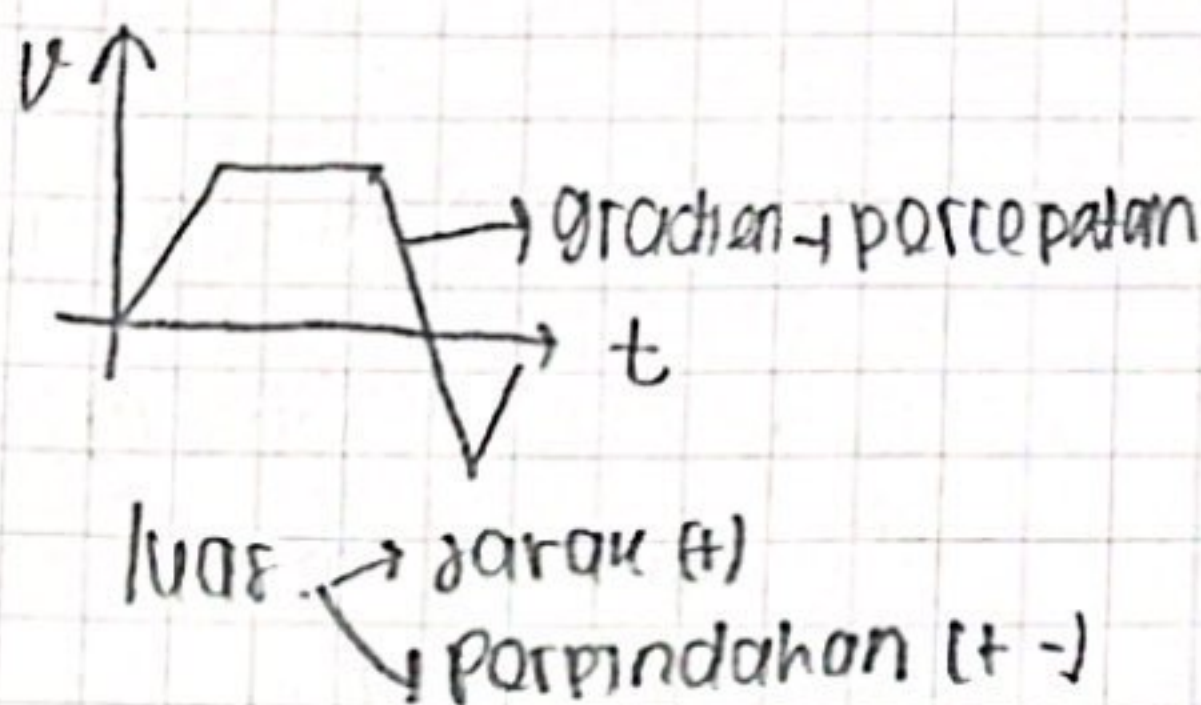 v
→ gradien → percepatan
t
luas → jarak (+)
→ perpindahan (+ -)